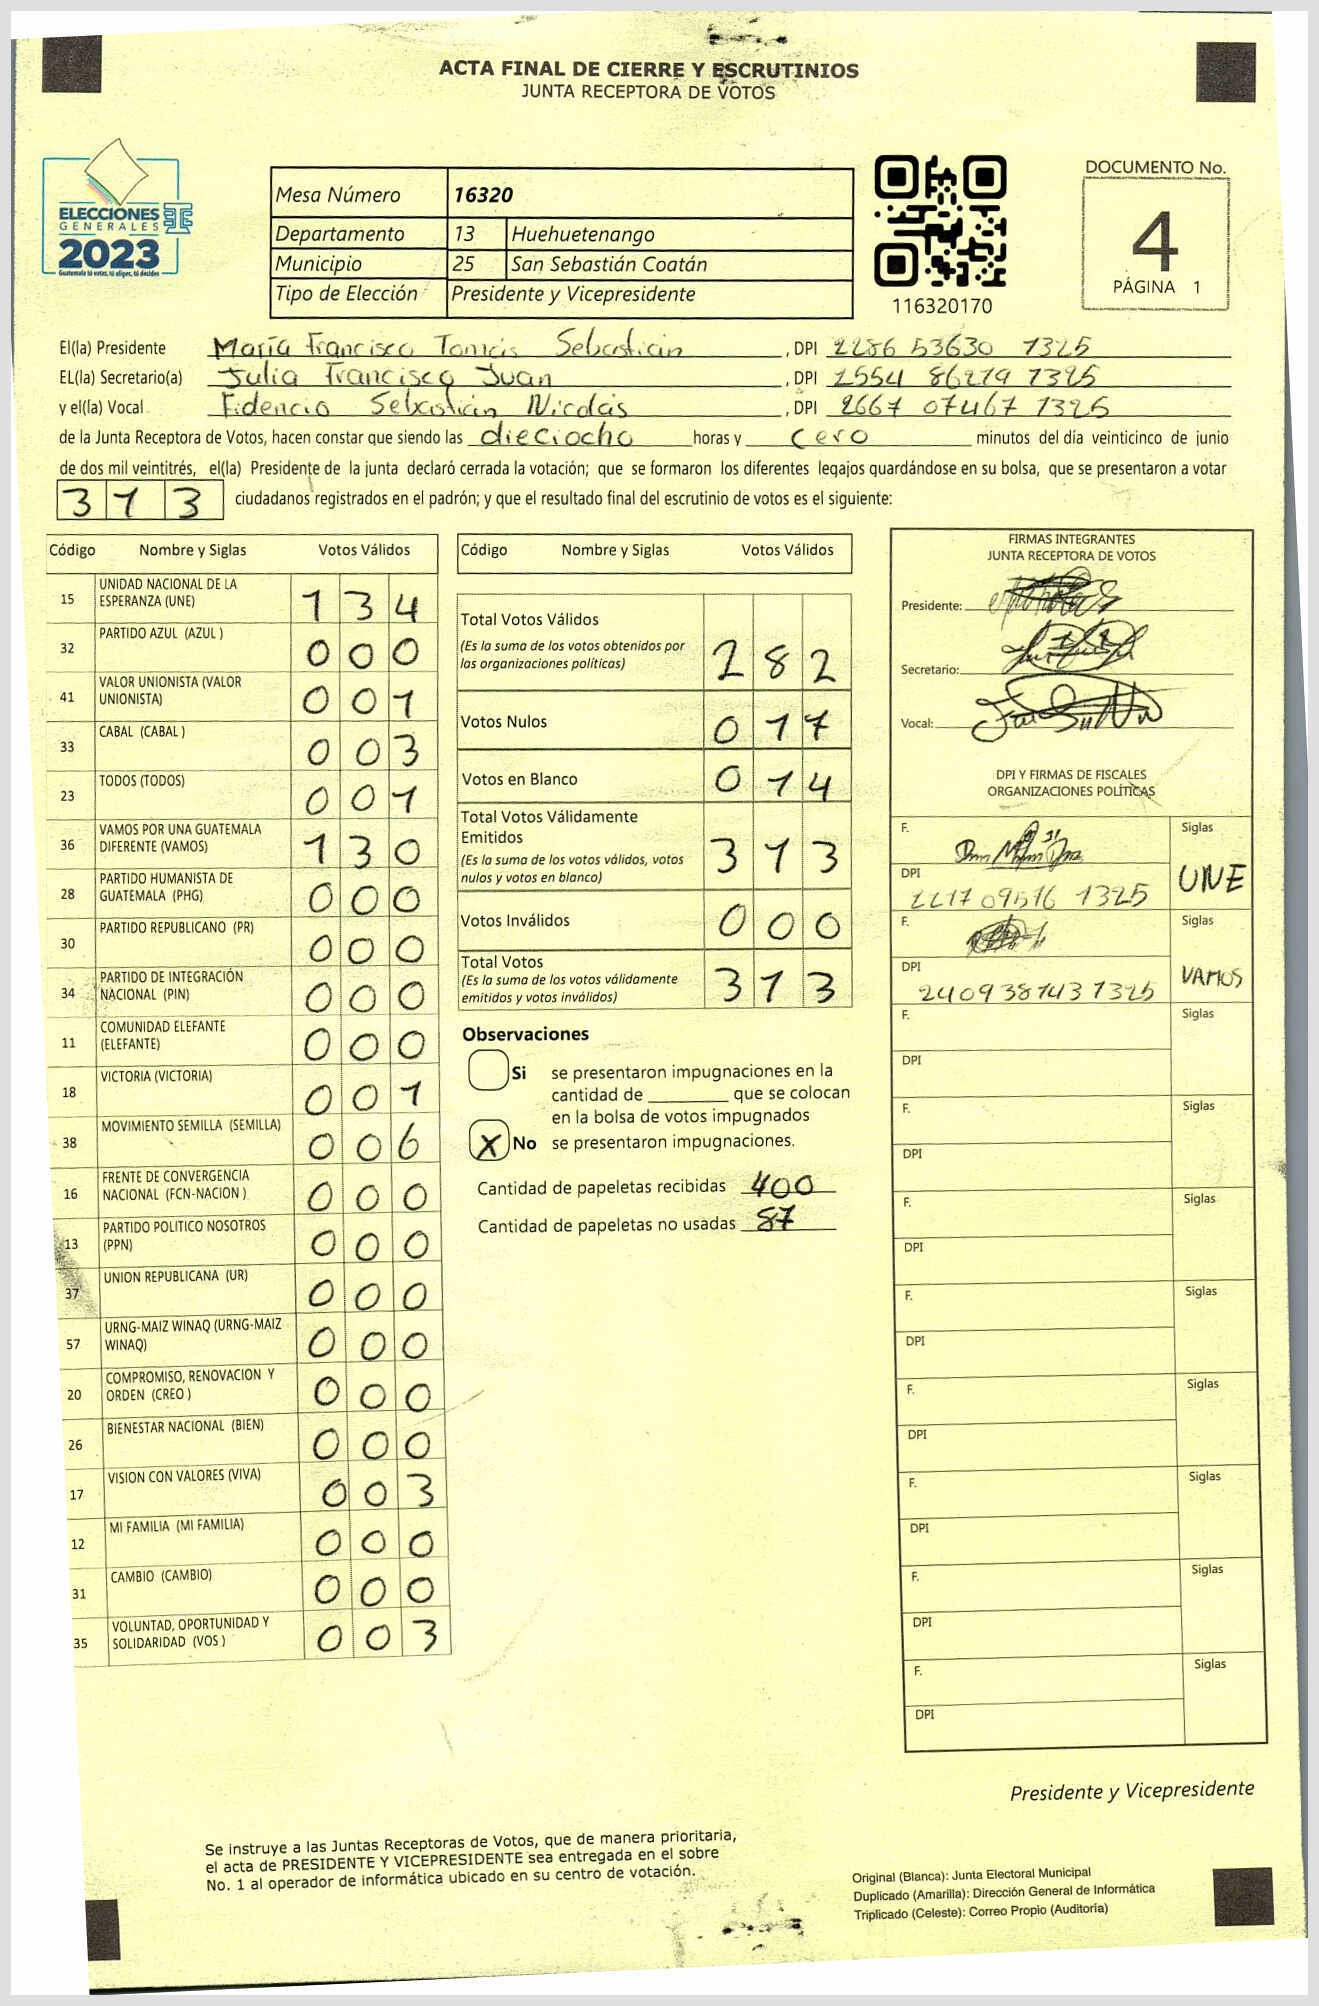 ACTA FINAL DE CIERRE Y ESCRUTINIOS
JUNTA RECEPTORA DE VOTOS
ELECCIONES
GENERALES
2023
Guatemala tú votas, tú eliges, tú decides
Mesa Número 16320
Departamento 13 Huehuetenango
Municipio 25 San Sebastián Coatán
Tipo de Elección Presidente y Vicepresidente
116320170
DOCUMENTO No.
4
PÁGINA 1
El(la) Presidente María Francisco Tomás Sebastián , DPI 2286 53630 1325
EL(la) Secretario(a) Julia Francisco Juan , DPI 2554 86279 1325
y el(la) Vocal Fidencio Sebastián Nicolás , DPI 2667 07467 1325
de la Junta Receptora de Votos, hacen constar que siendo las dieciocho horas y cero minutos del día veinticinco de junio
de dos mil veintitrés, el(la) Presidente de la junta declaró cerrada la votación; que se formaron los diferentes legajos guardándose en su bolsa, que se presentaron a votar
313 ciudadanos registrados en el padrón; y que el resultado final del escrutinio de votos es el siguiente:
Código Nombre y Siglas Votos Válidos
15 UNIDAD NACIONAL DE LA ESPERANZA (UNE) 134
32 PARTIDO AZUL (AZUL ) 000
41 VALOR UNIONISTA (VALOR UNIONISTA) 001
33 CABAL (CABAL ) 003
23 TODOS (TODOS) 001
36 VAMOS POR UNA GUATEMALA DIFERENTE (VAMOS) 130
28 PARTIDO HUMANISTA DE GUATEMALA (PHG) 000
30 PARTIDO REPUBLICANO (PR) 000
34 PARTIDO DE INTEGRACIÓN NACIONAL (PIN) 000
11 COMUNIDAD ELEFANTE (ELEFANTE) 000
18 VICTORIA (VICTORIA) 001
38 MOVIMIENTO SEMILLA (SEMILLA) 006
16 FRENTE DE CONVERGENCIA NACIONAL (FCN-NACION ) 000
13 PARTIDO POLITICO NOSOTROS (PPN) 000
37 UNION REPUBLICANA (UR) 000
57 URNG-MAIZ WINAQ (URNG-MAIZ WINAQ) 000
20 COMPROMISO, RENOVACION Y ORDEN (CREO ) 000
26 BIENESTAR NACIONAL (BIEN) 000
17 VISION CON VALORES (VIVA) 003
12 MI FAMILIA (MI FAMILIA) 000
31 CAMBIO (CAMBIO) 000
35 VOLUNTAD, OPORTUNIDAD Y SOLIDARIDAD (VOS ) 003
Código Nombre y Siglas Votos Válidos
Total Votos Válidos
(Es la suma de los votos obtenidos por
las organizaciones políticas) 282
Votos Nulos 017
Votos en Blanco 014
Total Votos Válidamente
Emitidos
(Es la suma de los votos válidos, votos
nulos y votos en blanco) 313
Votos Inválidos 000
Total Votos
(Es la suma de los votos válidamente
emitidos y votos inválidos) 313
Observaciones
Si se presentaron impugnaciones en la
cantidad de ________ que se colocan
en la bolsa de votos impugnados
X No se presentaron impugnaciones.
Cantidad de papeletas recibidas 400
Cantidad de papeletas no usadas 87
FIRMAS INTEGRANTES
JUNTA RECEPTORA DE VOTOS
Presidente:
Secretario:
Vocal:
DPI Y FIRMAS DE FISCALES
ORGANIZACIONES POLÍTICAS
F. Siglas
UNE
DPI 2217 09516 1325
F. Siglas
VAMOS
DPI 2409387431325
F. Siglas
DPI
F. Siglas
DPI
F. Siglas
DPI
F. Siglas
DPI
F. Siglas
DPI
F. Siglas
DPI
F. Siglas
DPI
F. Siglas
DPI
Presidente y Vicepresidente
Se instruye a las Juntas Receptoras de Votos, que de manera prioritaria,
el acta de PRESIDENTE Y VICEPRESIDENTE sea entregada en el sobre
No. 1 al operador de informática ubicado en su centro de votación.
Original (Blanca): Junta Electoral Municipal
Duplicado (Amarilla): Dirección General de Informática
Triplicado (Celeste): Correo Propio (Auditoría)